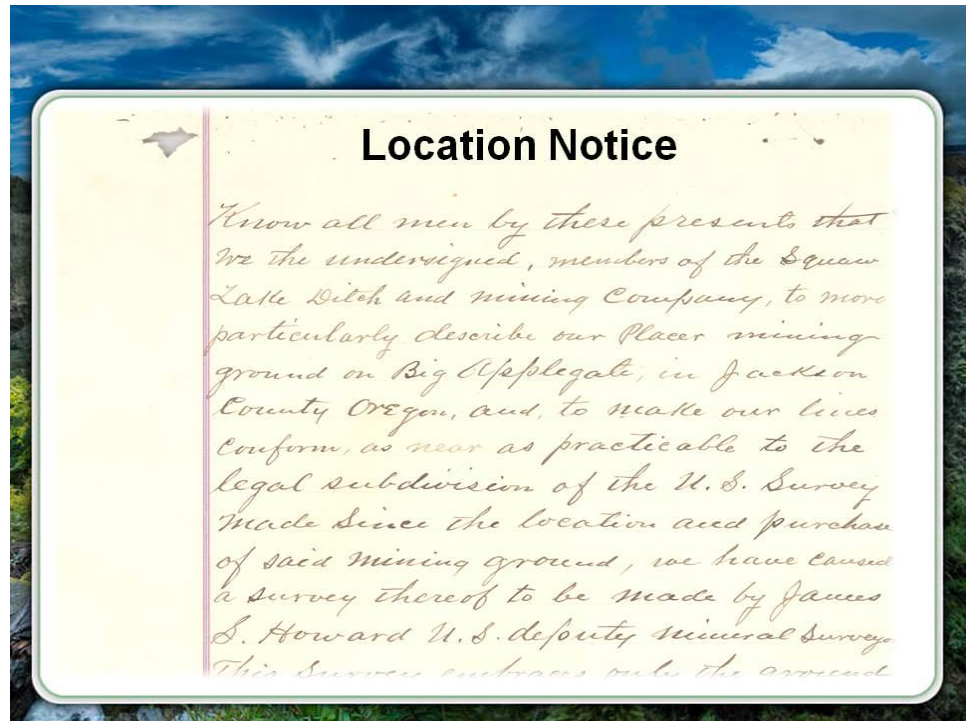 Location Notice
Know all men by these presents that
We the undersigned, members of the Squaw
Lake Ditch and mining Company, to more
particularly describe our Placer mining
ground on Big Applegate, in Jackson
County Oregon, and, to make our lines
conform, as near as practicable to the
legal subdivision of the U. S. Survey
made Since the location and purchase
of said mining ground, we have caused
a survey thereof to be made by James
S. Howard U. S. deputy mineral Surveyor
This Survey embraces only the ground